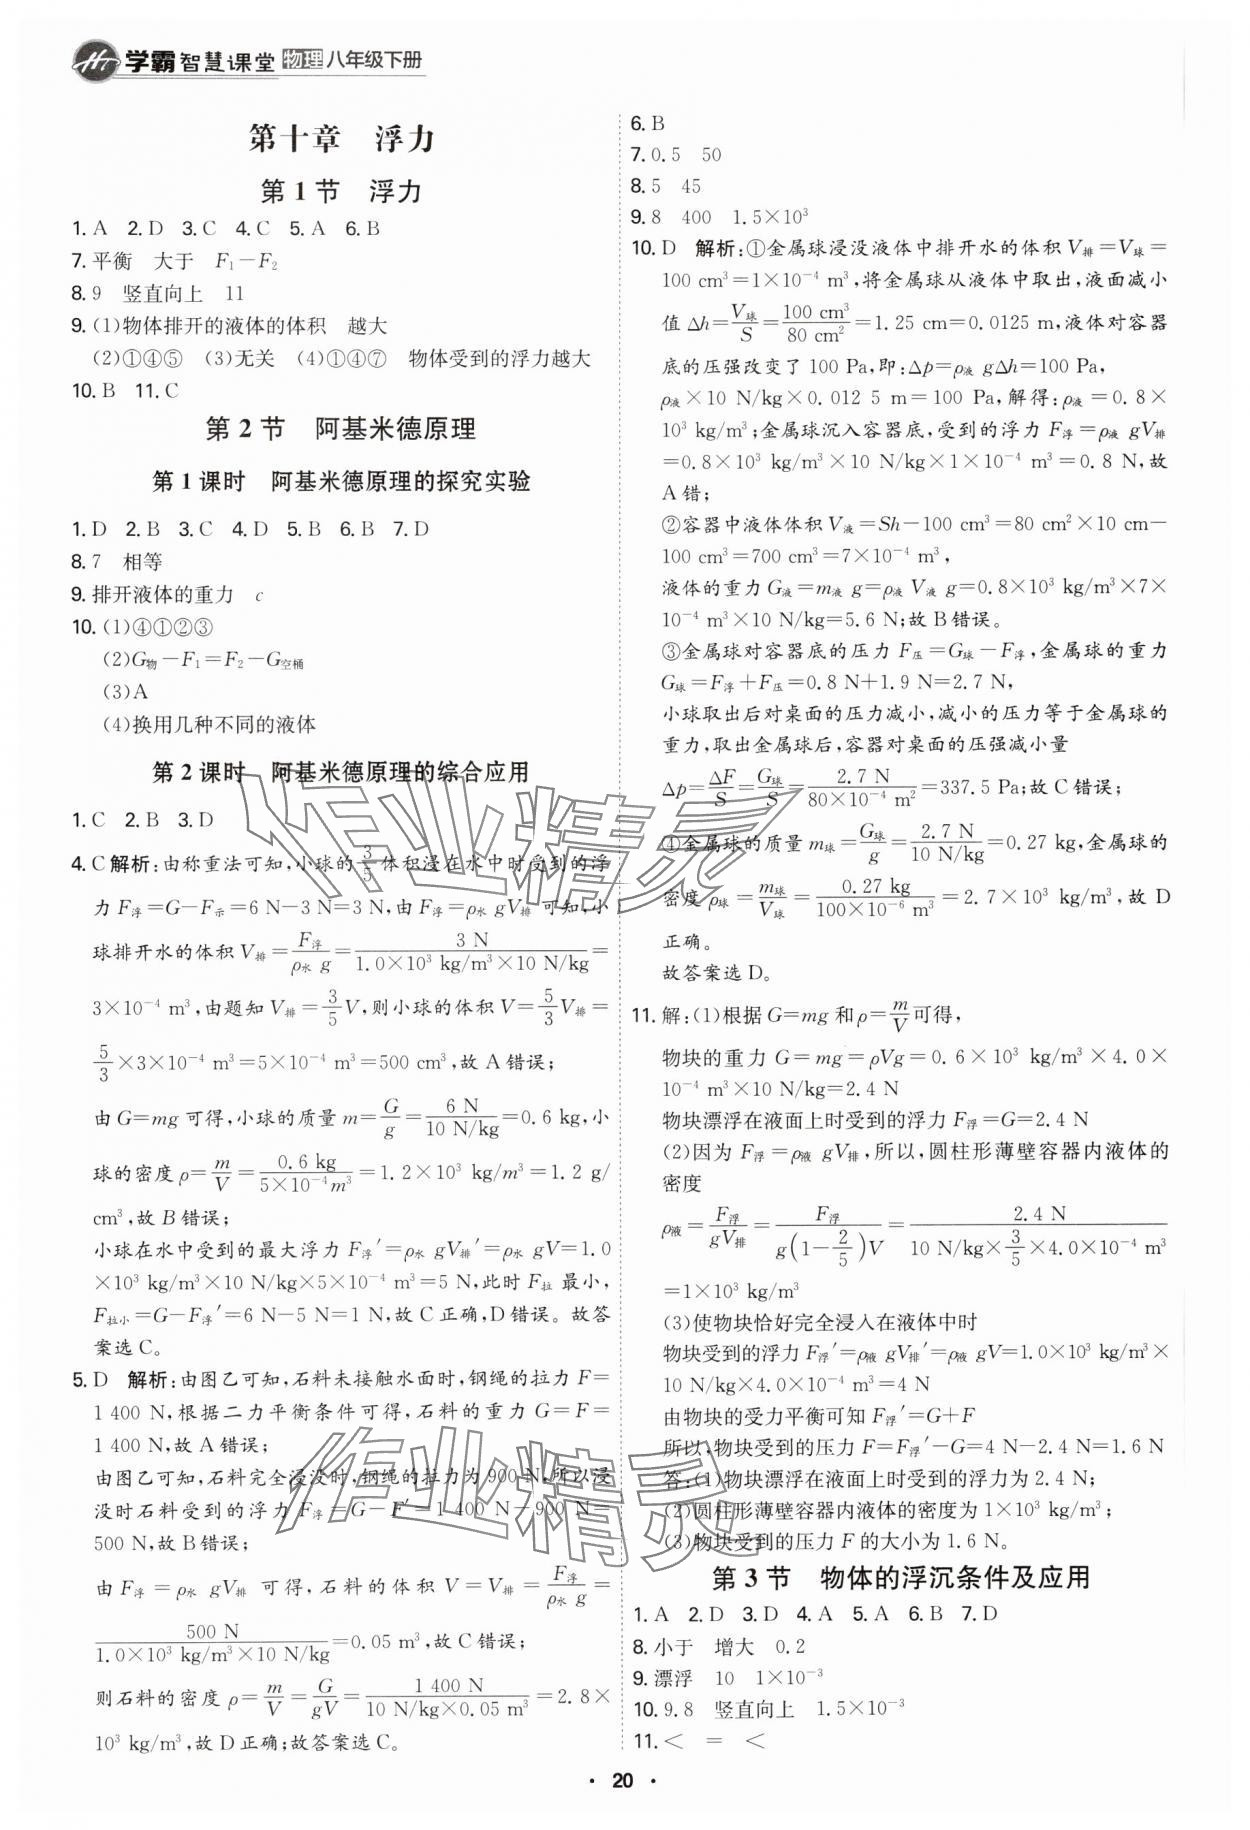 学霸智慧课堂 物理八年级下册
第十章 浮力
第1节 浮力
1. A 2. D 3. C 4. C 5. A 6. B
7. 平衡 大于 F₁－F₂
8. 9 竖直向上 11
9. (1)物体排开的液体的体积 越大
(2)①④⑤ (3)无关 (4)①④⑦ 物体受到的浮力越大
10. B 11. C
第2节 阿基米德原理
第1课时 阿基米德原理的探究实验
1. D 2. B 3. C 4. D 5. B 6. B 7. D
8. 7 相等
9. 排开液体的重力 c
10. (1)④①②③
(2)G物－F₁＝F₂－G空桶
(3)A
(4)换用几种不同的液体
第2课时 阿基米德原理的综合应用
1. C 2. B 3. D
4. C 解析:由称重法可知,小球的3/5体积浸在水中时受到的浮
力F浮＝G－F示＝6 N－3 N＝3 N,由F浮＝ρ水 gV排 可知,小
球排开水的体积V排＝F浮/(ρ水 g)＝3 N/(1.0×10³ kg/m³×10 N/kg)＝
3×10⁻⁴ m³,由题知V排＝3/5V,则小球的体积V＝5/3V排＝
5/3×3×10⁻⁴ m³＝5×10⁻⁴ m³＝500 cm³,故A错误;
由G＝mg可得,小球的质量m＝G/g＝6 N/(10 N/kg)＝0.6 kg,小
球的密度ρ＝m/V＝0.6 kg/(5×10⁻⁴m³)＝1.2×10³ kg/m³＝1.2 g/
cm³,故B错误;
小球在水中受到的最大浮力F浮′＝ρ水 gV排′＝ρ水 gV＝1.0
×10³ kg/m³×10 N/kg×5×10⁻⁴ m³＝5 N,此时F拉 最小,
F拉小＝G－F浮′＝6 N－5 N＝1 N,故C正确,D错误。故答
案选C。
5. D 解析:由图乙可知,石料未接触水面时,钢绳的拉力F＝
1 400 N,根据二力平衡条件可得,石料的重力G＝F＝
1 400 N,故A错误;
由图乙可知,石料完全浸没时,钢绳的拉力为900 N,所以浸
没时石料受到的浮力F浮＝G－F′＝1 400 N－900 N＝
500 N,故B错误;
由F浮＝ρ水 gV排 可得,石料的体积V＝V排＝F浮/(ρ水 g)＝
500 N/(1.0×10³ kg/m³×10 N/kg)＝0.05 m³,故C错误;
则石料的密度ρ＝m/V＝G/gV＝1 400 N/(10 N/kg×0.05 m³)＝2.8×
10³ kg/m³,故D正确;故答案选C。
6. B
7. 0.5 50
8. 5 45
9. 8 400 1.5×10³
10. D 解析:①金属球浸没液体中排开水的体积V排＝V球＝
100 cm³＝1×10⁻⁴ m³,将金属球从液体中取出,液面减小
值Δh＝V球/S＝100 cm³/80 cm²＝1.25 cm＝0.0125 m,液体对容器
底的压强改变了100 Pa,即:Δp＝ρ液 gΔh＝100 Pa,
ρ液×10 N/kg×0.012 5 m＝100 Pa,解得:ρ液＝0.8×
10³ kg/m³;金属球沉入容器底,受到的浮力F浮＝ρ液 gV排
＝0.8×10³ kg/m³×10 N/kg×1×10⁻⁴ m³＝0.8 N,故
A错;
②容器中液体体积V液＝Sh－100 cm³＝80 cm²×10 cm－
100 cm³＝700 cm³＝7×10⁻⁴ m³,
液体的重力G液＝m液 g＝ρ液 V液 g＝0.8×10³ kg/m³×7×
10⁻⁴ m³×10 N/kg＝5.6 N;故B错误。
③金属球对容器底的压力F压＝G球－F浮,金属球的重力
G球＝F浮＋F压＝0.8 N＋1.9 N＝2.7 N,
小球取出后对桌面的压力减小,减小的压力等于金属球的
重力,取出金属球后,容器对桌面的压强减小量
Δp＝ΔF/S＝G球/S＝2.7 N/(80×10⁻⁴ m²)＝337.5 Pa;故C错误;
④金属球的质量m球＝G球/g＝2.7 N/(10 N/kg)＝0.27 kg,金属球的
密度ρ球＝m球/V球＝0.27 kg/(100×10⁻⁶ m³)＝2.7×10³ kg/m³,故D
正确。
故答案选D。
11. 解:(1)根据G＝mg和ρ＝m/V可得,
物块的重力G＝mg＝ρVg＝0.6×10³ kg/m³×4.0×
10⁻⁴ m³×10 N/kg＝2.4 N
物块漂浮在液面上时受到的浮力F浮＝G＝2.4 N
(2)因为F浮＝ρ液 gV排,所以,圆柱形薄壁容器内液体的
密度
ρ液＝F浮/gV排＝F浮/(g(1－2/5)V)＝2.4 N/(10 N/kg×3/5×4.0×10⁻⁴ m³)
＝1×10³ kg/m³
(3)使物块恰好完全浸入在液体中时
物块受到的浮力F浮′＝ρ液 gV排′＝ρ液 gV＝1.0×10³ kg/m³×
10 N/kg×4.0×10⁻⁴ m³＝4 N
由物块的受力平衡可知F浮′＝G＋F
所以,物块受到的压力F＝F浮′－G＝4 N－2.4 N＝1.6 N
答:(1)物块漂浮在液面上时受到的浮力为2.4 N;
(2)圆柱形薄壁容器内液体的密度为1×10³ kg/m³;
(3)物块受到的压力F的大小为1.6 N。
第3节 物体的浮沉条件及应用
1. A 2. D 3. D 4. A 5. A 6. B 7. D
8. 小于 增大 0.2
9. 漂浮 10 1×10⁻³
10. 9.8 竖直向上 1.5×10⁻³
11. ＜ ＝ ＜
· 20 ·
作业精灵
作业精灵